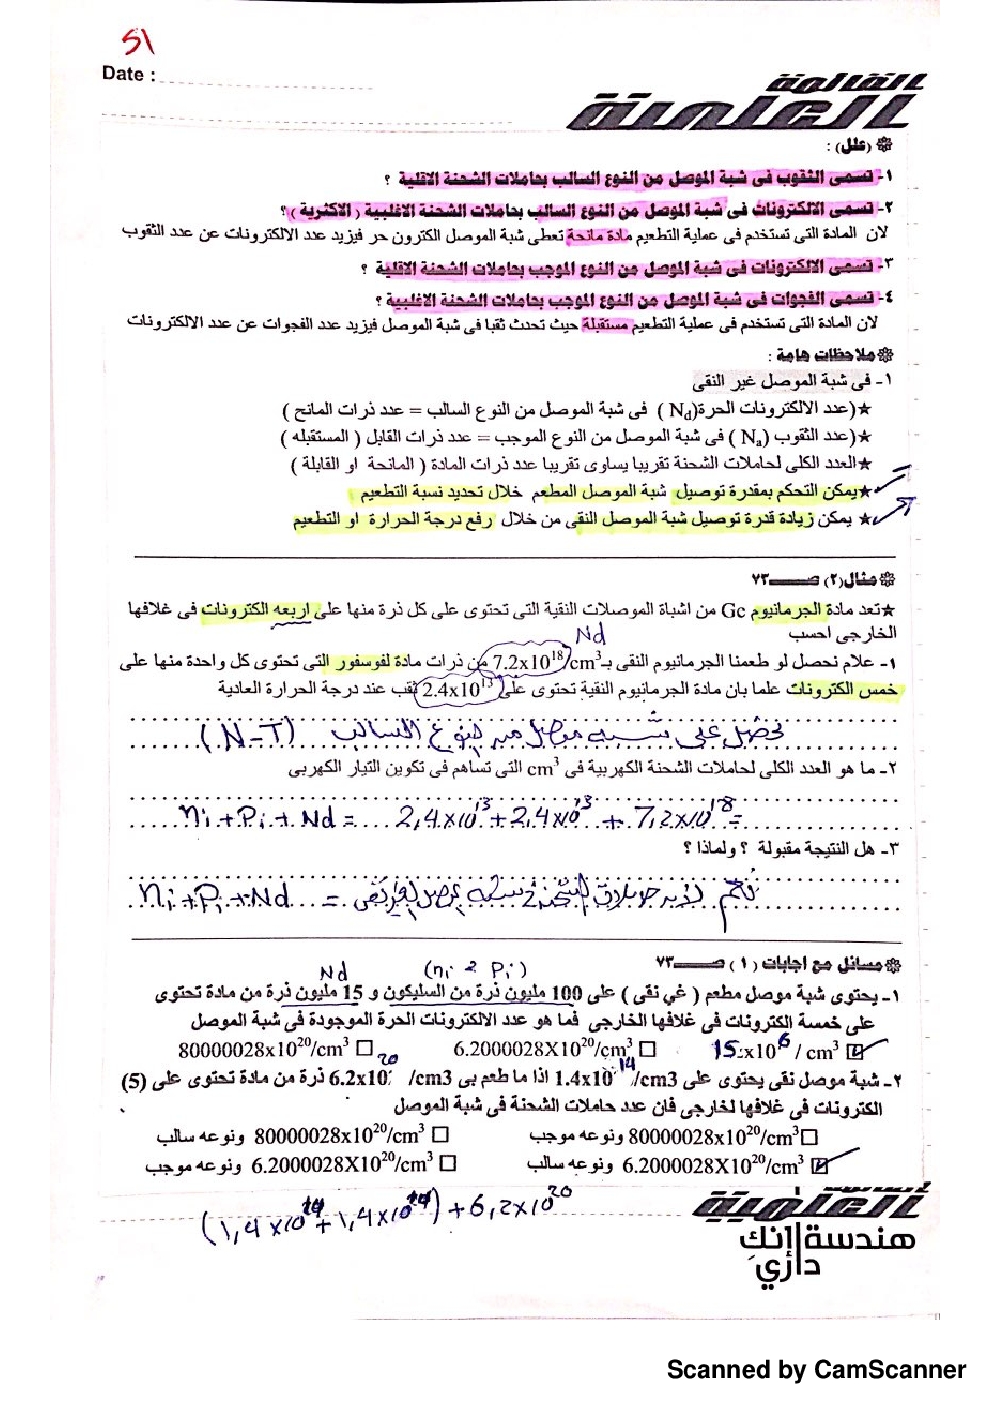 51
Date :
القائمة
العلمية
(علل) :
١- تسمى الثقوب فى شبة الموصل من النوع السالب بحاملات الشحنة الاقلية ؟
٢- تسمى الالكترونات فى شبة الموصل من النوع السالب بحاملات الشحنة الاغلبية ( الاكثرية ) ؟
لان المادة التى تستخدم فى عملية التطعيم مادة مانحة تعطى شبة الموصل الكترون حر فيزيد عدد الالكترونات عن عدد الثقوب
٣- تسمى الالكترونات فى شبة الموصل من النوع الموجب بحاملات الشحنة الاقلية ؟
٤- تسمى الفجوات فى شبة الموصل من النوع الموجب بحاملات الشحنة الاغلبية ؟
لان المادة التى تستخدم فى عملية التطعيم مستقبلة حيث تحدث ثقبا فى شبة الموصل فيزيد عدد الفجوات عن عدد الالكترونات
ملاحظات هامة :
١- فى شبة الموصل غير النقى
★(عدد الالكترونات الحرة(Nd) فى شبة الموصل من النوع السالب = عدد ذرات المانح )
★(عدد الثقوب (Na) فى شبة الموصل من النوع الموجب = عدد ذرات القابل ( المستقبله )
★العدد الكلى لحاملات الشحنة تقريبا يساوى تقريبا عدد ذرات المادة ( المانحة او القابلة )
★يمكن التحكم بمقدرة توصيل شبة الموصل المطعم خلال تحديد نسبة التطعيم
★ يمكن زيادة قدرة توصيل شبة الموصل النقى من خلال رفع درجة الحرارة او التطعيم
مثال(٢) صـــ٧٣
★تعد مادة الجرمانيوم Gc من اشباة الموصلات النقية التى تحتوى على كل ذرة منها على اربعه الكترونات فى غلافها
الخارجى احسب
Nd
١- علام نحصل لو طعمنا الجرمانيوم النقى بـ 7.2x10¹⁸/cm³ من ذرات مادة لفوسفور التى تحتوى كل واحدة منها على
خمس الكترونات علما بان مادة الجرمانيوم النقية تحتوى على 2.4x10¹³ ثقب عند درجة الحرارة العادية
نحصل على شبه موصل من النوع السالب (N-T)
٢- ما هو العدد الكلى لحاملات الشحنة الكهربية فى cm³ التى تساهم فى تكوين التيار الكهربى
ni + Pi + Nd = 2,4x10¹³ + 2,4x10¹³ + 7,2x10¹⁸ =
٣- هل النتيجة مقبولة ؟ ولماذا ؟
نعم حاملات الشحنة = ni + Pi + Nd
مسائل مع اجابات (١) صـــ٧٣
Nd (ni = Pi)
١- يحتوى شبة موصل مطعم ( غي نقى ) على 100 مليون ذرة من السليكون و 15 مليون ذرة من مادة تحتوى
على خمسة الكترونات فى غلافها الخارجى فما هو عدد الالكترونات الحرة الموجودة فى شبة الموصل
☑ 15x10⁶ / cm³ □ 6.2000028X10²⁰/cm³ □ 80000028x10²⁰/cm³
٢- شبة موصل نقى يحتوى على 1.4x10¹⁴ /cm3 اذا ما طعم بى 6.2x10²⁰ /cm3 ذرة من مادة تحتوى على (5)
الكترونات فى غلافها لخارجى فان عدد حاملات الشحنة فى شبة الموصل
□80000028x10²⁰/cm³ ونوعه موجب □ 80000028x10²⁰/cm³ ونوعه سالب
☑ 6.2000028X10²⁰/cm³ ونوعه سالب □ 6.2000028X10²⁰/cm³ ونوعه موجب
(1,4x10¹⁴ + 1,4x10¹⁴) + 6,2x10²⁰
العلمية
هندسة إنكِ
داري
Scanned by CamScanner